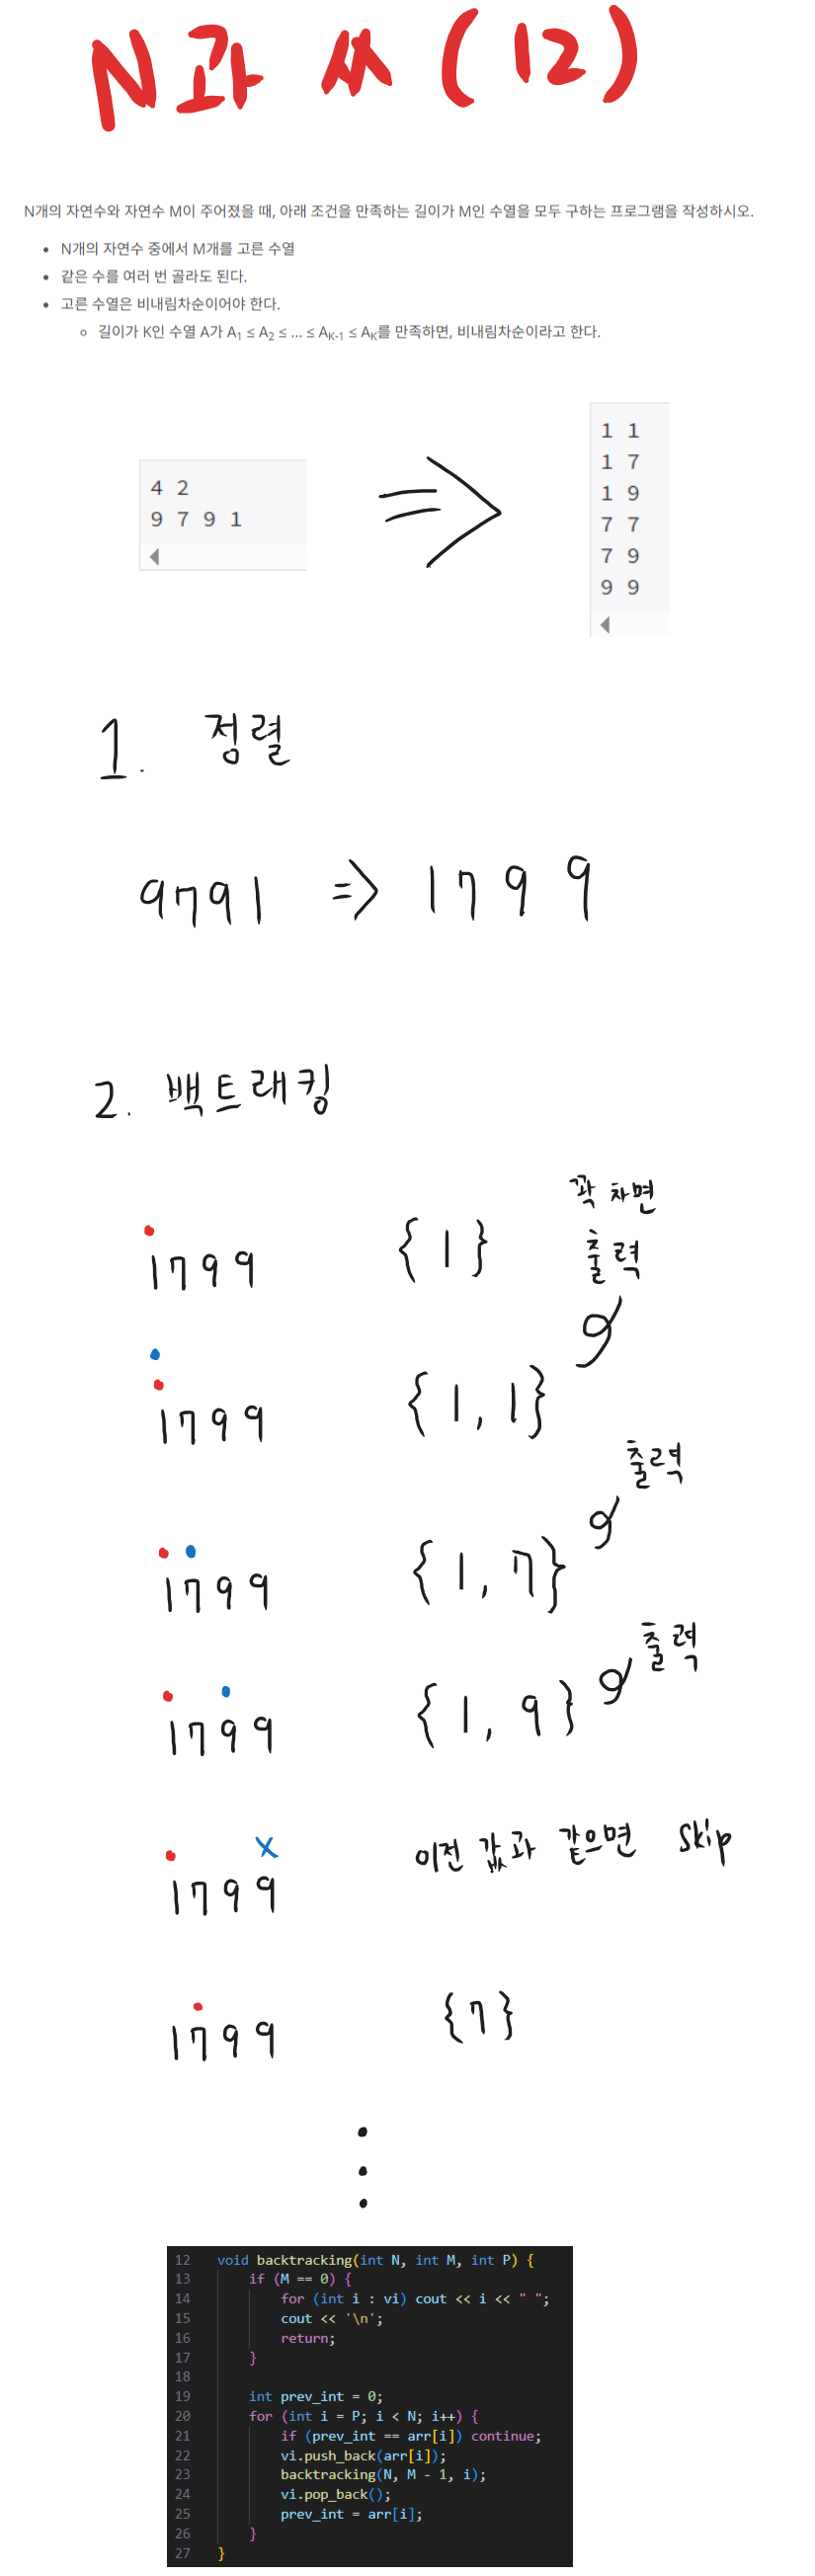 N과 M (12)
N개의 자연수와 자연수 M이 주어졌을 때, 아래 조건을 만족하는 길이가 M인 수열을 모두 구하는 프로그램을 작성하시오.
• N개의 자연수 중에서 M개를 고른 수열
• 같은 수를 여러 번 골라도 된다.
• 고른 수열은 비내림차순이어야 한다.
◦ 길이가 K인 수열 A가 A1 ≤ A2 ≤ ... ≤ AK-1 ≤ AK를 만족하면, 비내림차순이라고 한다.
4 2
9 7 9 1
⇒
1 1
1 7
1 9
7 7
7 9
9 9
1. 정렬
9791 => 1799
2. 백트래킹
1799 {1}
꽉 차면
출력
1799 {1,1}
출력
1799 {1,7}
출력
1799 {1,9}
1799 이전 값과 같으면 skip
1799 {7}
12 void backtracking(int N, int M, int P) {
13 if (M == 0) {
14 for (int i : vi) cout << i << " ";
15 cout << '\n';
16 return;
17 }
18
19 int prev_int = 0;
20 for (int i = P; i < N; i++) {
21 if (prev_int == arr[i]) continue;
22 vi.push_back(arr[i]);
23 backtracking(N, M - 1, i);
24 vi.pop_back();
25 prev_int = arr[i];
26 }
27 }